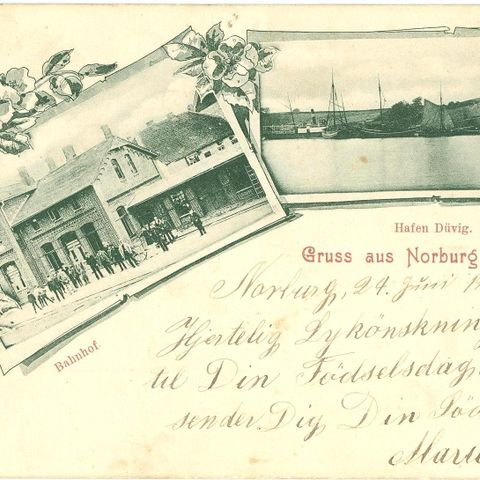 Hafen Düvig.
Gruss aus Norburg
Bahnhof.
Norburg, 24 Juni 1
Hjertelig Lykönsknin
til Din Födselsdag
sender Dig Din Sö
Marie